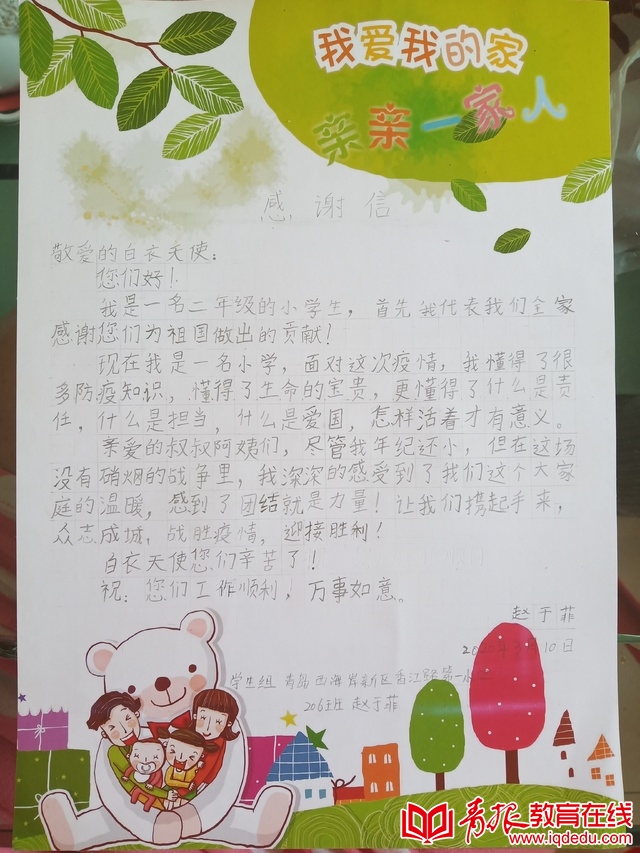 我爱我的家
亲亲一家人
感谢信
敬爱的白衣天使：
您们好！
我是一名二年级的小学生，首先我代表我们全家
感谢您们为祖国做出的贡献！
现在我是一名小学，面对这次疫情，我懂得了很
多防疫知识，懂得了生命的宝贵，更懂得了什么是责
任，什么是担当，什么是爱国，怎样活着才有意义。
亲爱的叔叔阿姨们，尽管我年纪还小，但在这场
没有硝烟的战争里，我深深的感受到了我们这个大家
庭的温暖，感到了团结就是力量！让我们携起手来，
众志成城，战胜疫情，迎接胜利！
白衣天使您们辛苦了！
祝：您们工作顺利，万事如意。
赵于菲
2020年3月10日
学生组 青岛西海岸新区香江路第一小学
206班 赵于菲
青报教育在线
www.iqdedu.com